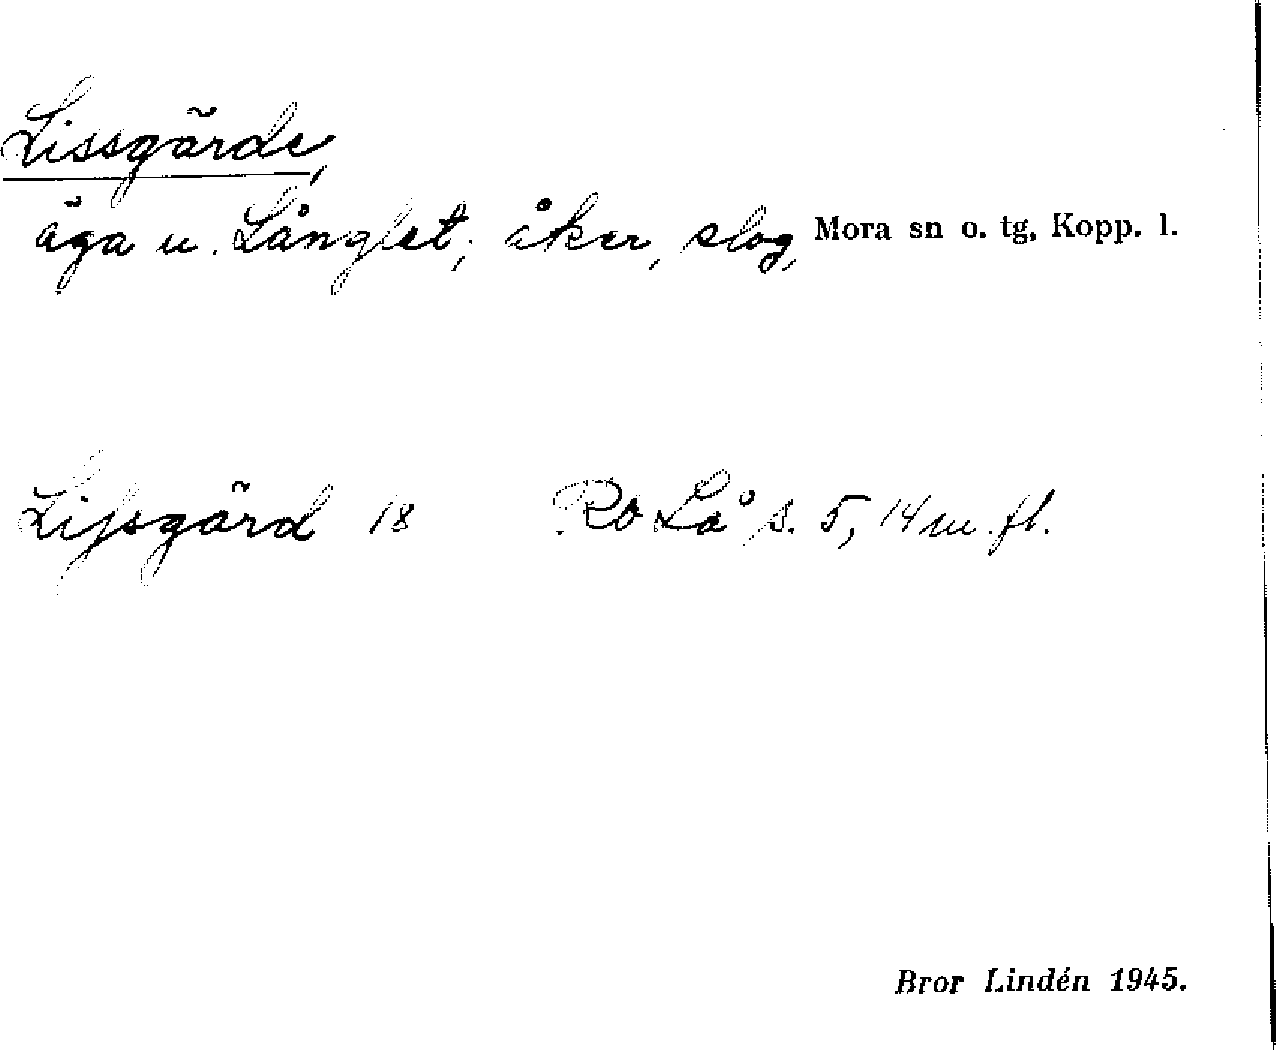 Lissgärde,
äga u. Långlet; åker, slog, Mora sn o. tg, Kopp. l.
Lissgärd 18 Ro Lå s. 5, 14 m. fl.
Bror Lindén 1945.